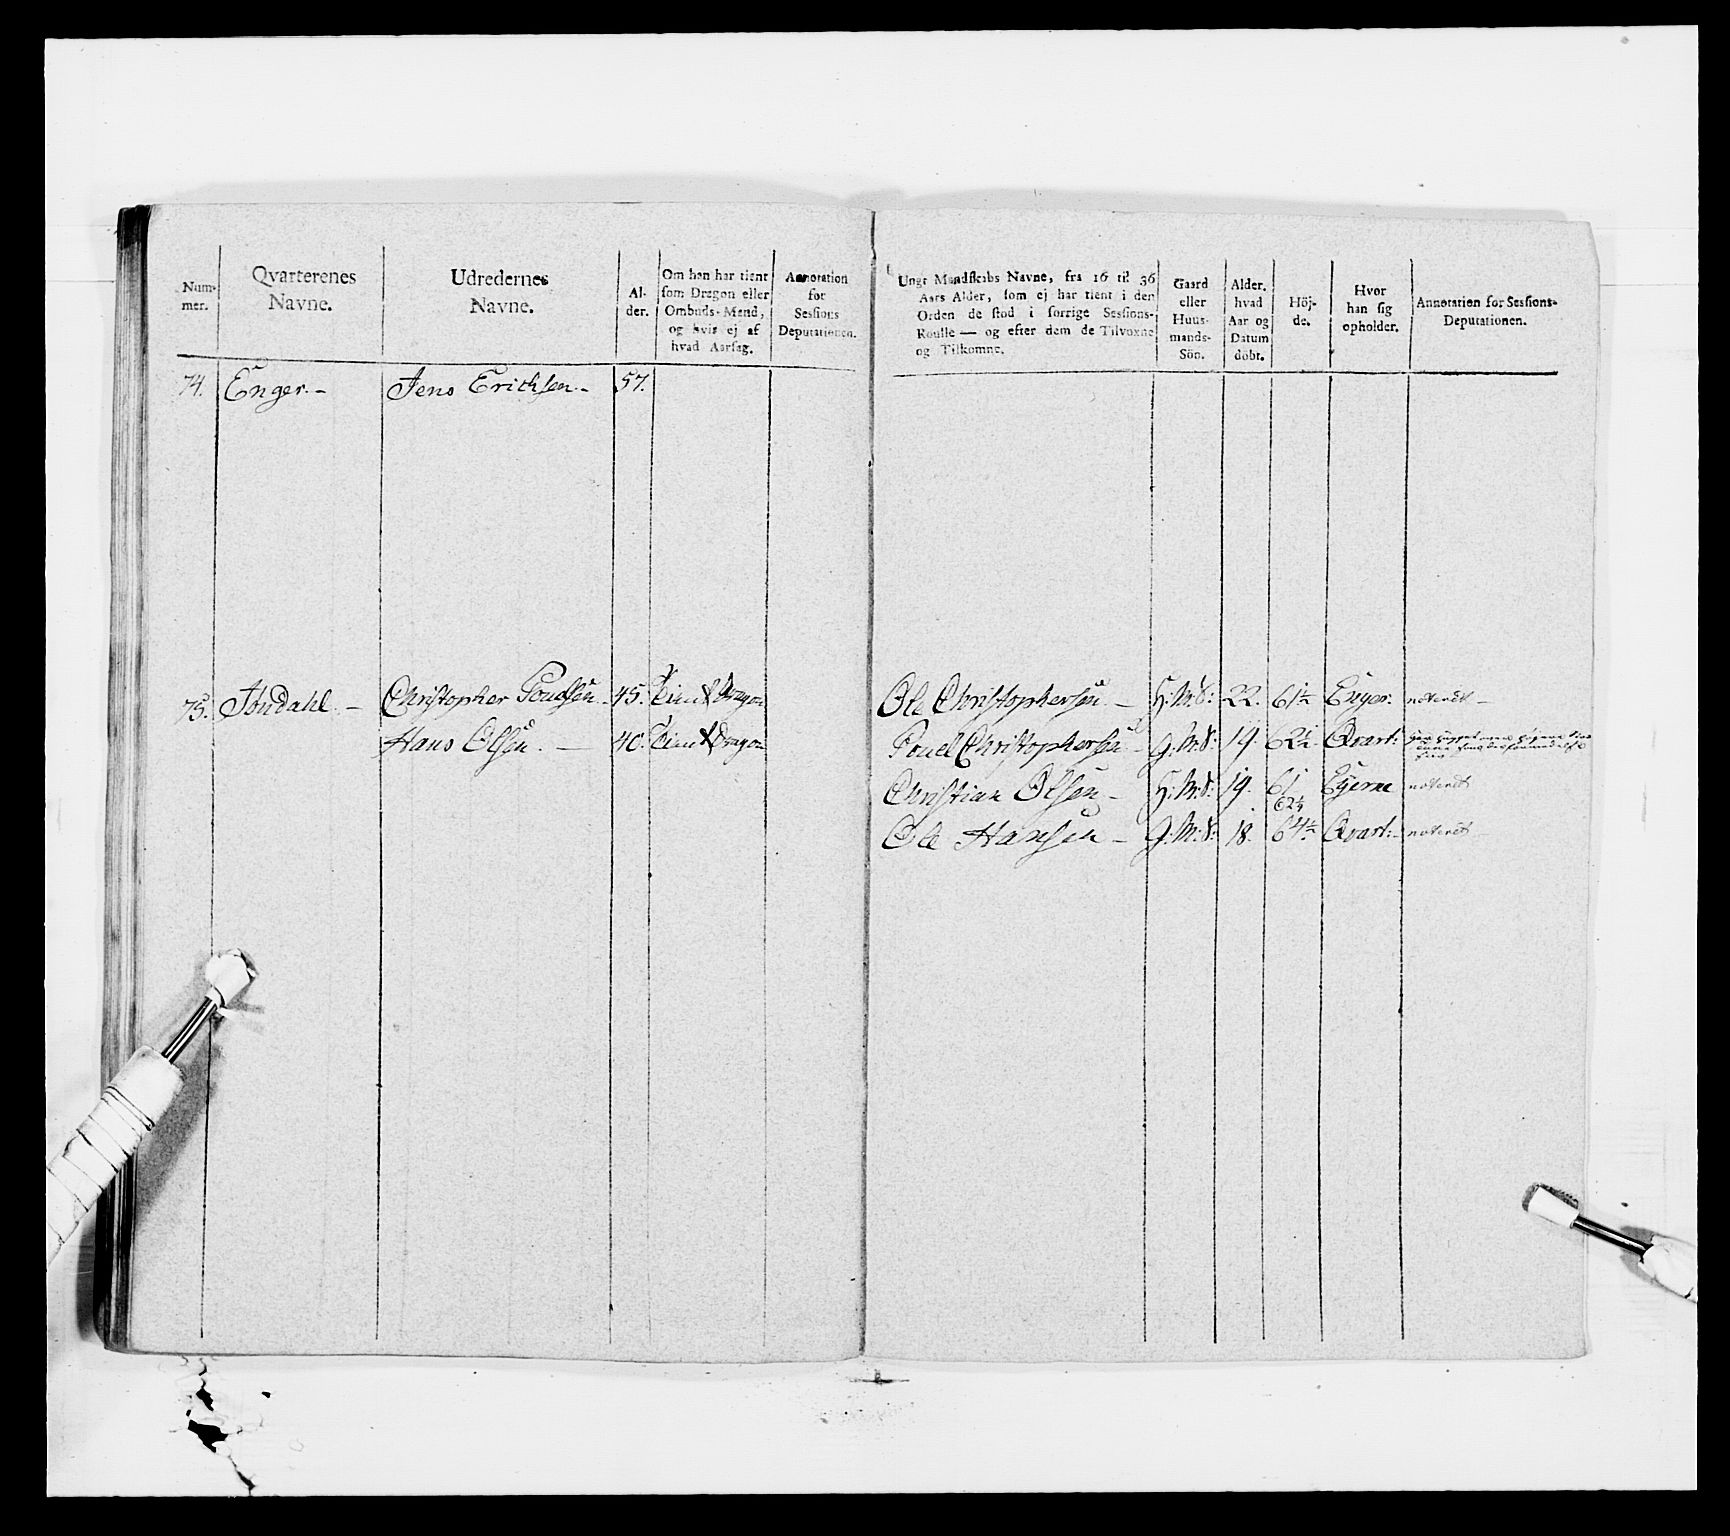 Num-
mer.
Qvarterenes
Navne.
Udredernes
Navne.
Al-
der.
Om han har tient
som Dragon eller
Ombuds-Mand,
og hvis ej af
hvad Aarsag.
Annotation
for
Sessions
Deputationen.
Ungt Mandskabs Navne, fra 16 til 36
Aars Alder, som ej har tient i den
Orden de stod i forrige Sessions-
Roulle — og efter dem de Tilvoxne
og Tilkomne.
Gaard
eller
Huus-
mands-
Sön.
Alder.
hvad
Aar og
Datum
döbt.
Höj-
de.
Hvor
han sig
opholder.
Annotation for Sessions-
Deputationen.
74. Enger.- Jens Erichsen.- 57.
75. Jøndahl. - Christopher Pouelsen. 45. Tient Dragon Ole Christophersen - H:M:S: 22. 61½ Enger. noteret -
Hans Olsen. - 40. Tient Dragon Pouel Christophersen - G:M:S: 19. 62½ Qvart:
Christian Olsen - H:M:S: 19. 61 Eyerne noteret
62¼
Ole Hansen - G:M:S: 18. 64½ Qvart:- noteret -